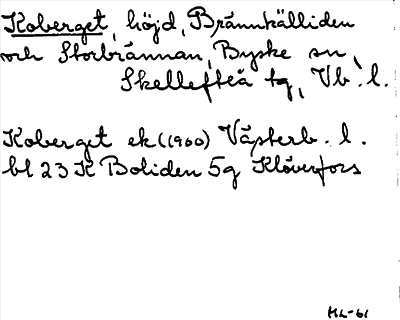 Koberget, höjd, Brännkälliden
och Storbrännan, Byske sn,
Skellefteå tg, Vb. l.
Koberget ek (1960) Västerb. l.
bl 23 K Boliden 5g Klöverfors
HL-61